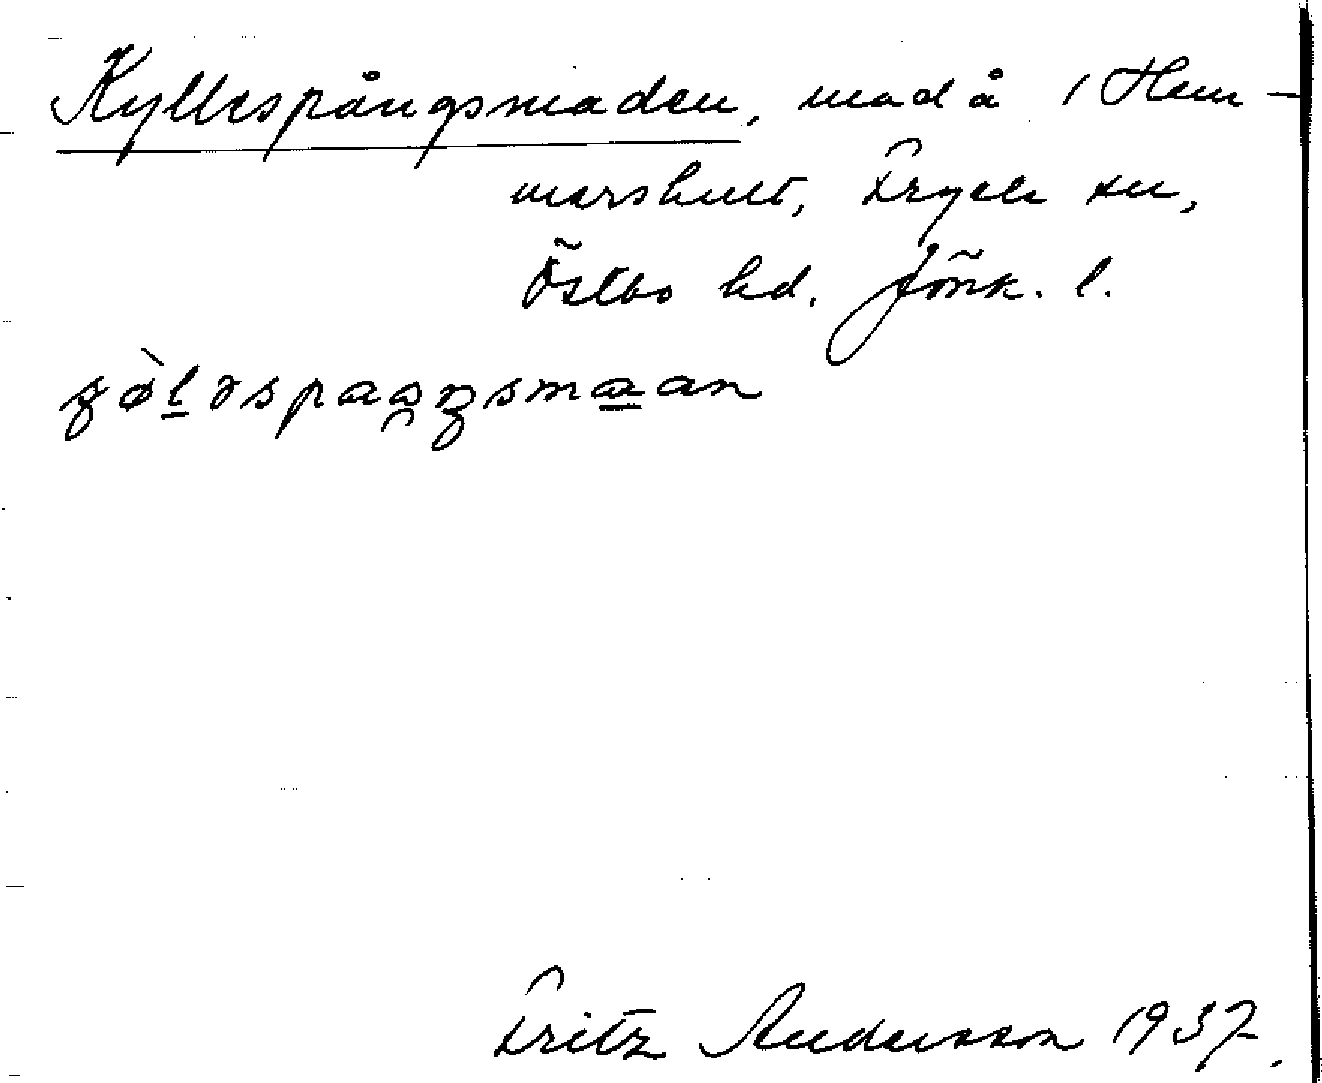 Kyllespångsmaden, mad å 1 Hem-
marshult, Fryele sn,
Östbo hd. Jönk. l.
Fritz Andersson 1937.